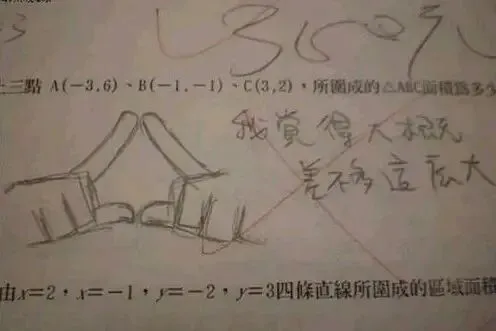 三點 A(-3,6)、B(-1,-1)、C(3,2)，所圍成的△ABC面積為多
我覺得大概
差不多這麼大
由x=2，x=-1，y=-2，y=3四條直線所圍成的區域面積